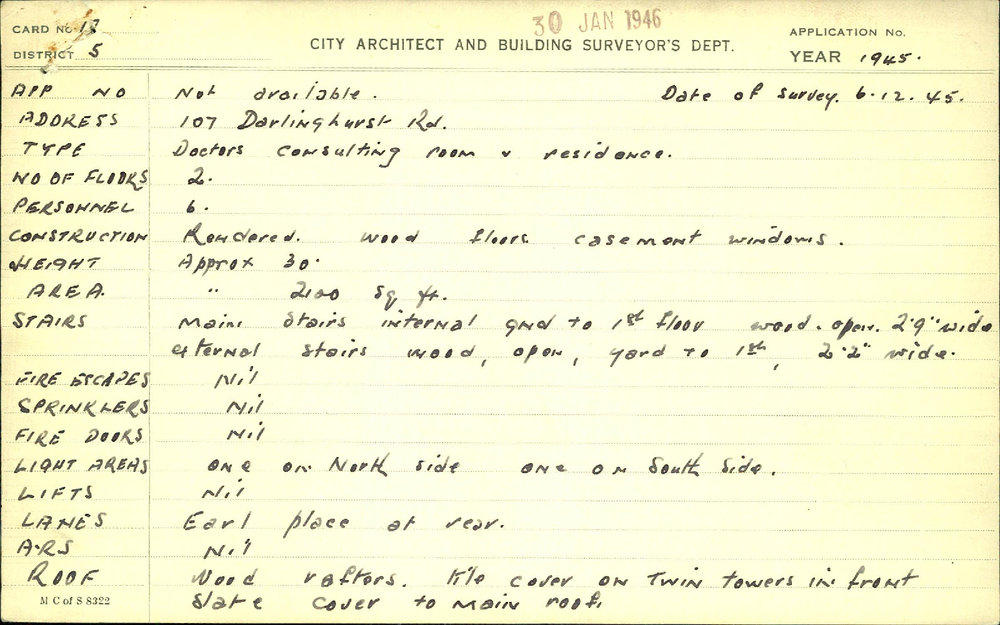 30 JAN 1946
CARD No 18
DISTRICT 5
CITY ARCHITECT AND BUILDING SURVEYOR'S DEPT.
APPLICATION No.
YEAR 1945.
APP NO Not available. Date of survey. 6.12.45.
ADDRESS 107 Darlinghurst Rd.
TYPE Doctors consulting room & residence.
NO OF FLOORS 2.
PERSONNEL 6.
CONSTRUCTION Rendered. wood floors casement windows.
HEIGHT Approx 30'
AREA. " 2100 Sq ft.
STAIRS Main Stairs internal gnd to 1st floor wood. open. 2'9" wide
external stairs wood, open, yard to 1st, 2'2" wide.
FIRE ESCAPES Nil
SPRINKLERS Nil
FIRE DOORS Nil
LIGHT AREAS one on North side one on South side.
LIFTS Nil
LANES Earl place at rear.
A.R.S Nil
ROOF Wood rafters. tile cover on Twin towers in front
Slate cover to main roof.
M C of S 8322